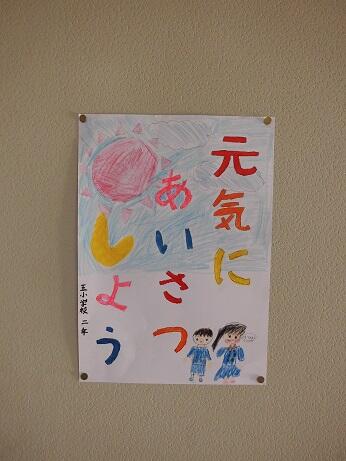 元気に
あいさつ
しよう
玉小学校 二年